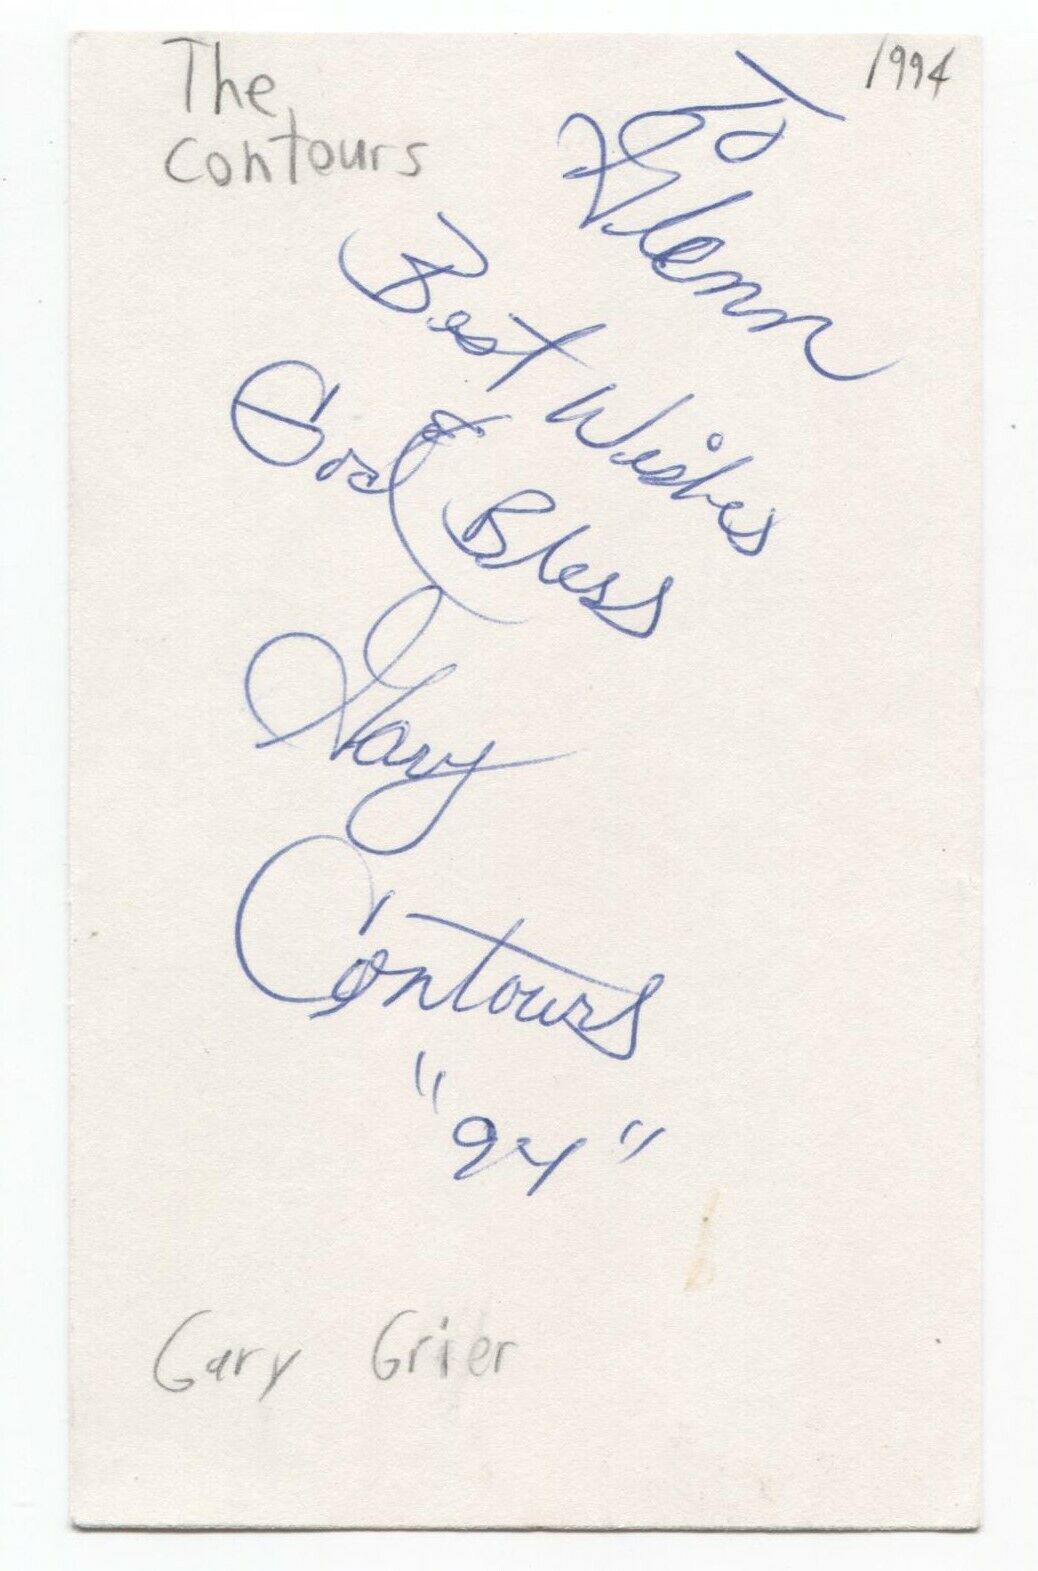 The
Contours
1994
To
Glenn
Best Wishes
God Bless
Gary
Contours
"94"
Gary Grier